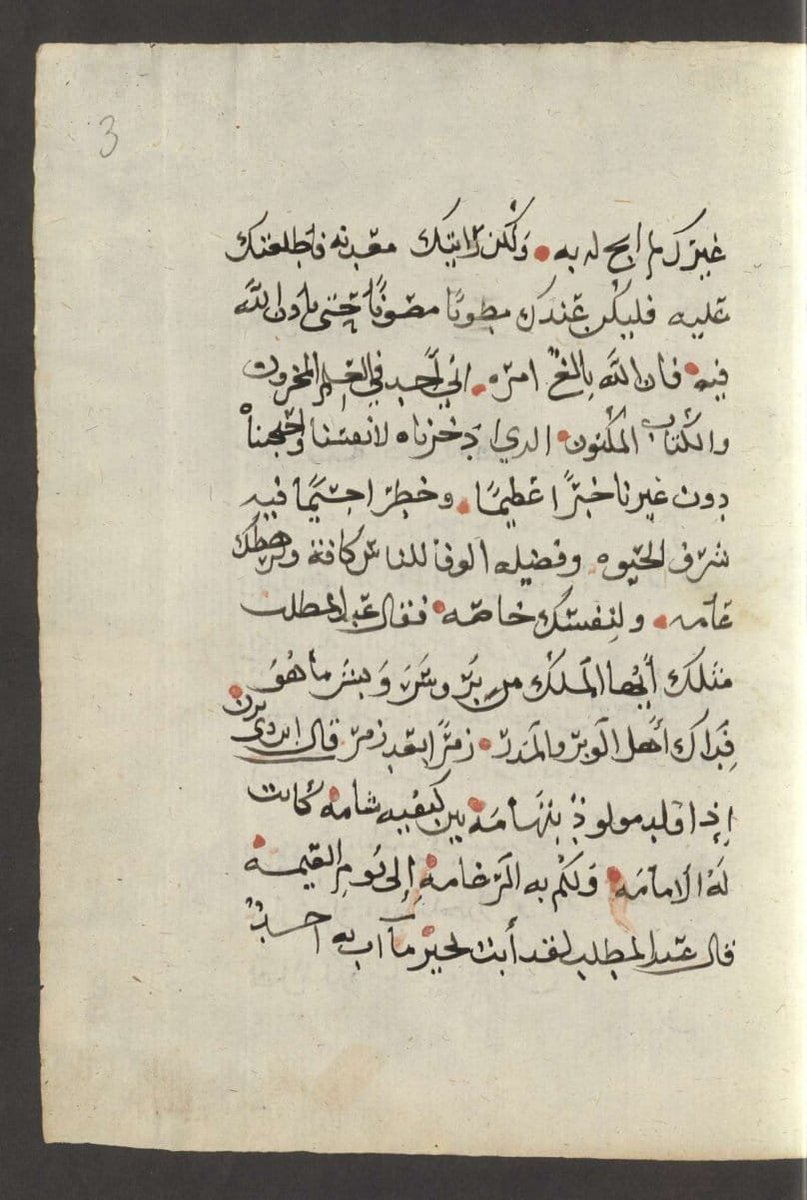 3
غيرك لم ابح له به ولكن رايتك معدنه فاطلعتك
عليه فليكن عندك مطويًا مصونًا حتى ياذن الله
فيه فان الله بالغٌ امره اني لَأجد في العلم المخزون
والكتاب المكنون الذي ادخرناه لانفسنا واحتجبناه
دون غيرنا خبرًا عظيمًا وخطرًا جسيمًا فيه
شرف الحيوه وفضيله الوفا للناس كافة ولرهطك
عامه ولنفسك خاصه فقال عبد المطلب
مثلك أيُّها الملك من بَرَّ وسَرَّ وَبشر ما هُوَ
فِداك أهل الوبر والمدر زمرًا بعد زمر قال ابن ذي يزن
إِذا ولد مولودٌ بتهامَه بين كتفيه شامه كانت
لهُ الامامَه وَلكُم به الزعامه إلى يَومِ القيمه
قال عبد المطلب لقد أبت بخير مآ اب به احدٌ